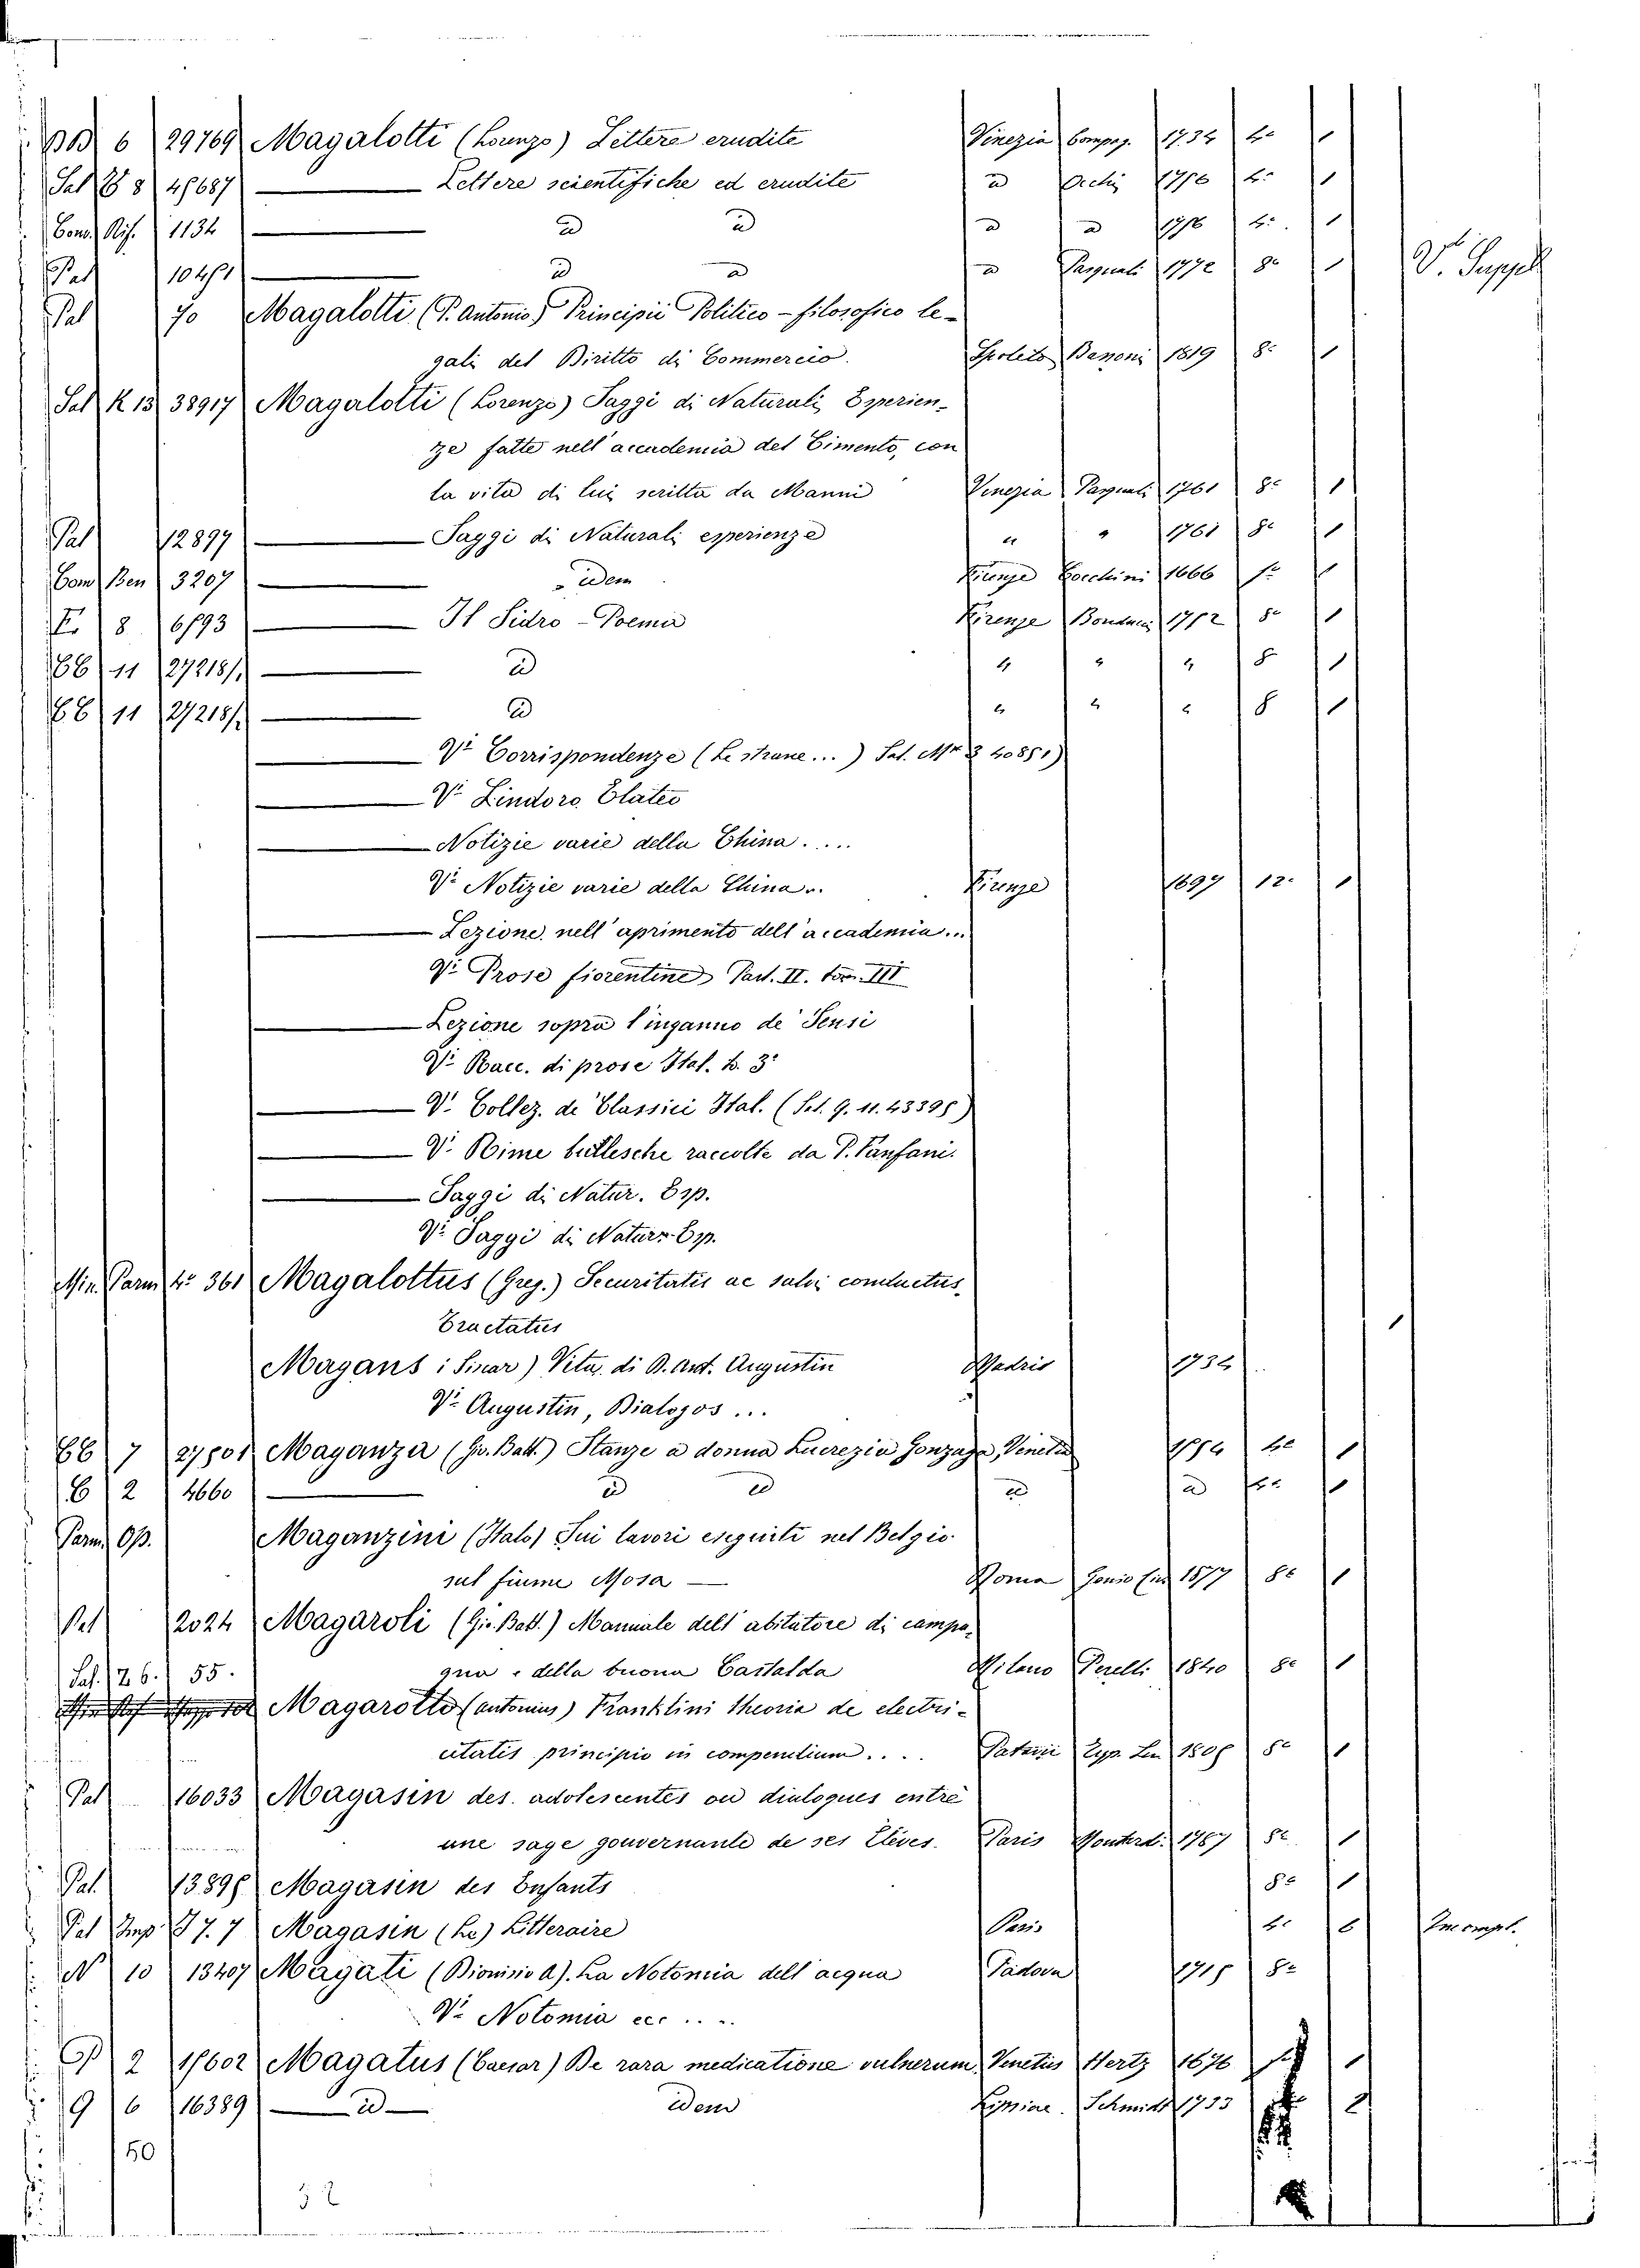 BB 6 29769 Magalotti (Lorenzo) Lettere erudite Vinezia Compag. 1734 4º 1
Sal 8 48687 — Lettere scientifiche ed erudite id Occhi 1756 4º 1
Com. Rif. 1134 — id id id id 1756 4º 1
Pal 10451 — id id id Pasquali 1772 8º 1 V. Suppl
Pal 70 Magalotti (P. Antonio) Principii Politico-filosofico le-
gali del Diritto di Commercio. Spoleto Banoni 1819 8º 1
Sal K 13 38917 Magalotti (Lorenzo) Saggi di Naturali Esperien-
ze fatte nell'accademia del Cimento, con
la vita di lui scritta da Manni Venezia Pasquali 1761 8º 1
Pal 12897 — Saggi di Naturali esperienze " " 1761 8º 1
Com Ben 3207 — idem Firenze Cocchini 1666 fº 1
8 — Il Sidro - Poema Firenze Bonducci 1752 8º 1
EE 11 27218/ — id " " " 8 1
EE 11 27218/ — id " " " 8 1
— Vi Corrispondenze (Le strane...) Sal. Mr 3 40851)
— Vi Lindoro Elateo
— Notizie varie della China....
Vi Notizie varie della China.. Firenze 1697 12º 1
— Lezione nell'aprimento dell'accademia...
Vi Prose fiorentine Part. II. tom. III
— Lezione sopra l'inganno de' Sensi
Vi Racc. di prose Ital. t. 3º
— V. Collez. de' Classici Ital. (Sal. 9. 11. 43395)
— V. Rime burlesche raccolte da P. Fanfani.
— Saggi di Natur. Esp.
Vi Saggi di Natur. Esp.
Min. Parm 4º 361 Magalottus (Greg.) Securitatis ac salvi conductus,
Tractatus 1
Magans : Sinar) Vita di D. Ant. Augustin Madrid 1734
Vi Augustin, Dialogos...
EE 7 Maganza (Gio. Batt.) Stanze a donna Lucrezia Gonzaga, Venetia 1554 4º 1
E 2 4660 — id id id id 1
Parm Op. Maganzini (Italo) Sui lavori eseguiti nel Belgio
sul fiume Mosa — Roma Genio Civ 1877 8º 1
Pal 2024 Magaroli (Gio. Batt.) Manuale dell'abitatore di campa-
gna e della buona Castalda Milano Perelli 1840 8º 1
Sal. 26. 55. Magarotto (antonius) Franklini theoria de electri-
citatis principio in compendium.... Patavii Typ. Sem 1805 8º 1
Pal 16033 Magasin des adolescentes ou dialogues entre
une sage gouvernante de ses Elèves. Paris 1767 8º 1
Pal. 13895 Magasin des Enfants 8º 1
Pal Imp 7. 7 Magasin (Le) Litteraire Paris 4º 6 Incompl.
N 10 13407 Magati (Dionisio A). La Notomia dell'acqua Padova 1715 8º
Vi Notomia ecc....
2 Magatus (Caesar) De rara medicatione vulnerum Venetiis Hertz 1676 1
9 6 16389 — id — idem Lipsiae Schmidt 1733 2
50
32